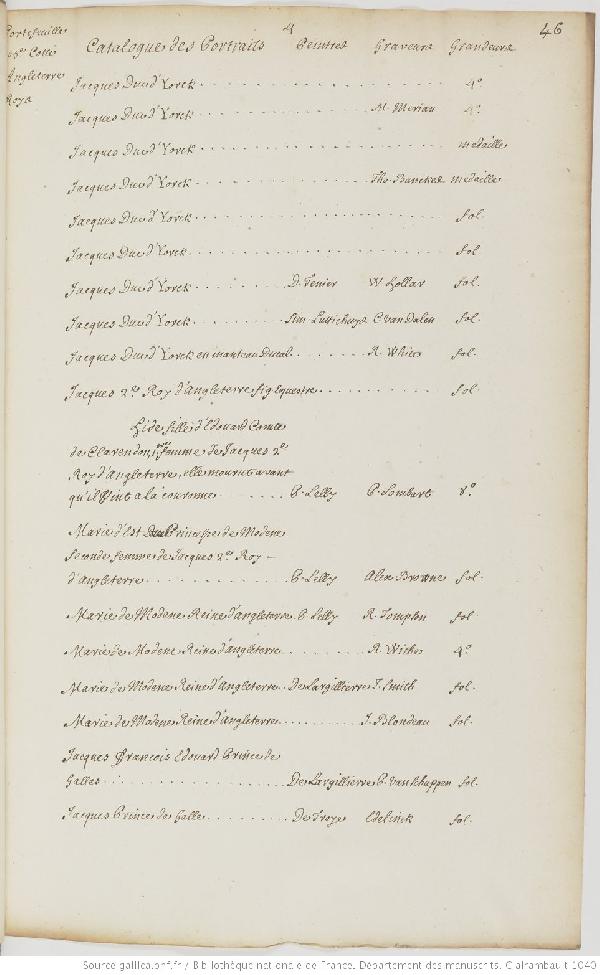 4
46
Portefeuille
Angleterre
Roya
Catalogue des Portraits Peintres Graveurs Grandeurs
Jacques Duc d'Yorck 4°
Jacques Duc d'Yorck M. Merian 4°
Jacques Duc d'Yorck medaille
Jacques Duc d'Yorck Tho. medaille
Jacques Duc d'Yorck fol.
Jacques Duc d'Yorck fol.
Jacques Duc d'Yorck D. Tenier W Hollar fol.
Jacques Duc d'Yorck C. Van Dalen fol.
Jacques Duc d'Yorck en manteau Ducal R. White fol.
Jacques 2e Roy d'Angleterre fig. Equestre fol.
Hide fille d'Edouard Comte
de Clarendon, femme de Jacques 2e
Roy d'Angleterre, elle mourut avant
qu'il vint a la couronne P. Lelly P. Lombart 8°
Marie d'Est Princesse de Modene
seconde femme de Jacques 2e Roy
d'Angleterre P. Lelly Alex Browne fol.
Marie de Modene Reine d'angleterre P. Lelly R. Tompson fol.
Marie de Modene Reine d'angleterre 4°
Marie de Modene Reine d'Angleterre De Largillierre J. Smith fol.
Marie de Modene Reine d'Angleterre J. Blondeau fol.
Jacques François Edouard Prince de
Galles De Largillierre P. Van Schuppen fol.
Jacques Prince de Galle De Troye Edelinck fol.
Source gallica.bnf.fr / Bibliothèque nationale de France. Département des manuscrits. Clairambault 1040